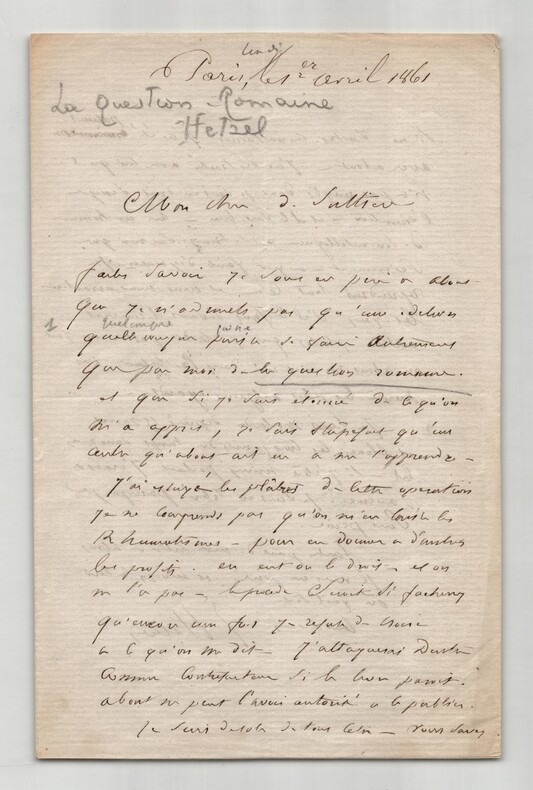 lundi
Paris, le 1er avril 1861
La Question Romaine
Hetzel
Mon cher
faites savoir je vous en prie a about
que je n'admets pas qu'une édition
quelconque
quelconque puisse se faire autrement
que par moi de la question romaine.
et que si je suis étonné de ce qu'on
m'a appris, je suis stupéfait qu'un
autre qu'about ait eu a me l'apprendre -
J'ai essuyé les plâtres de cette operation
je ne comprends pas qu'on m'en laisse les
Rhumatismes - pour en donner a d'autres
les profits. en eut on le droit - et on
ne l'a pas - le procédé serait si facheux
qu'encore une fois je refuse de croire
a ce qu'on me dit - J'attaquerai
comme contrefacteur si le livre parait.
about ne peut l'avoir autorisé a le publier.
Je suis désolé de tout cela -